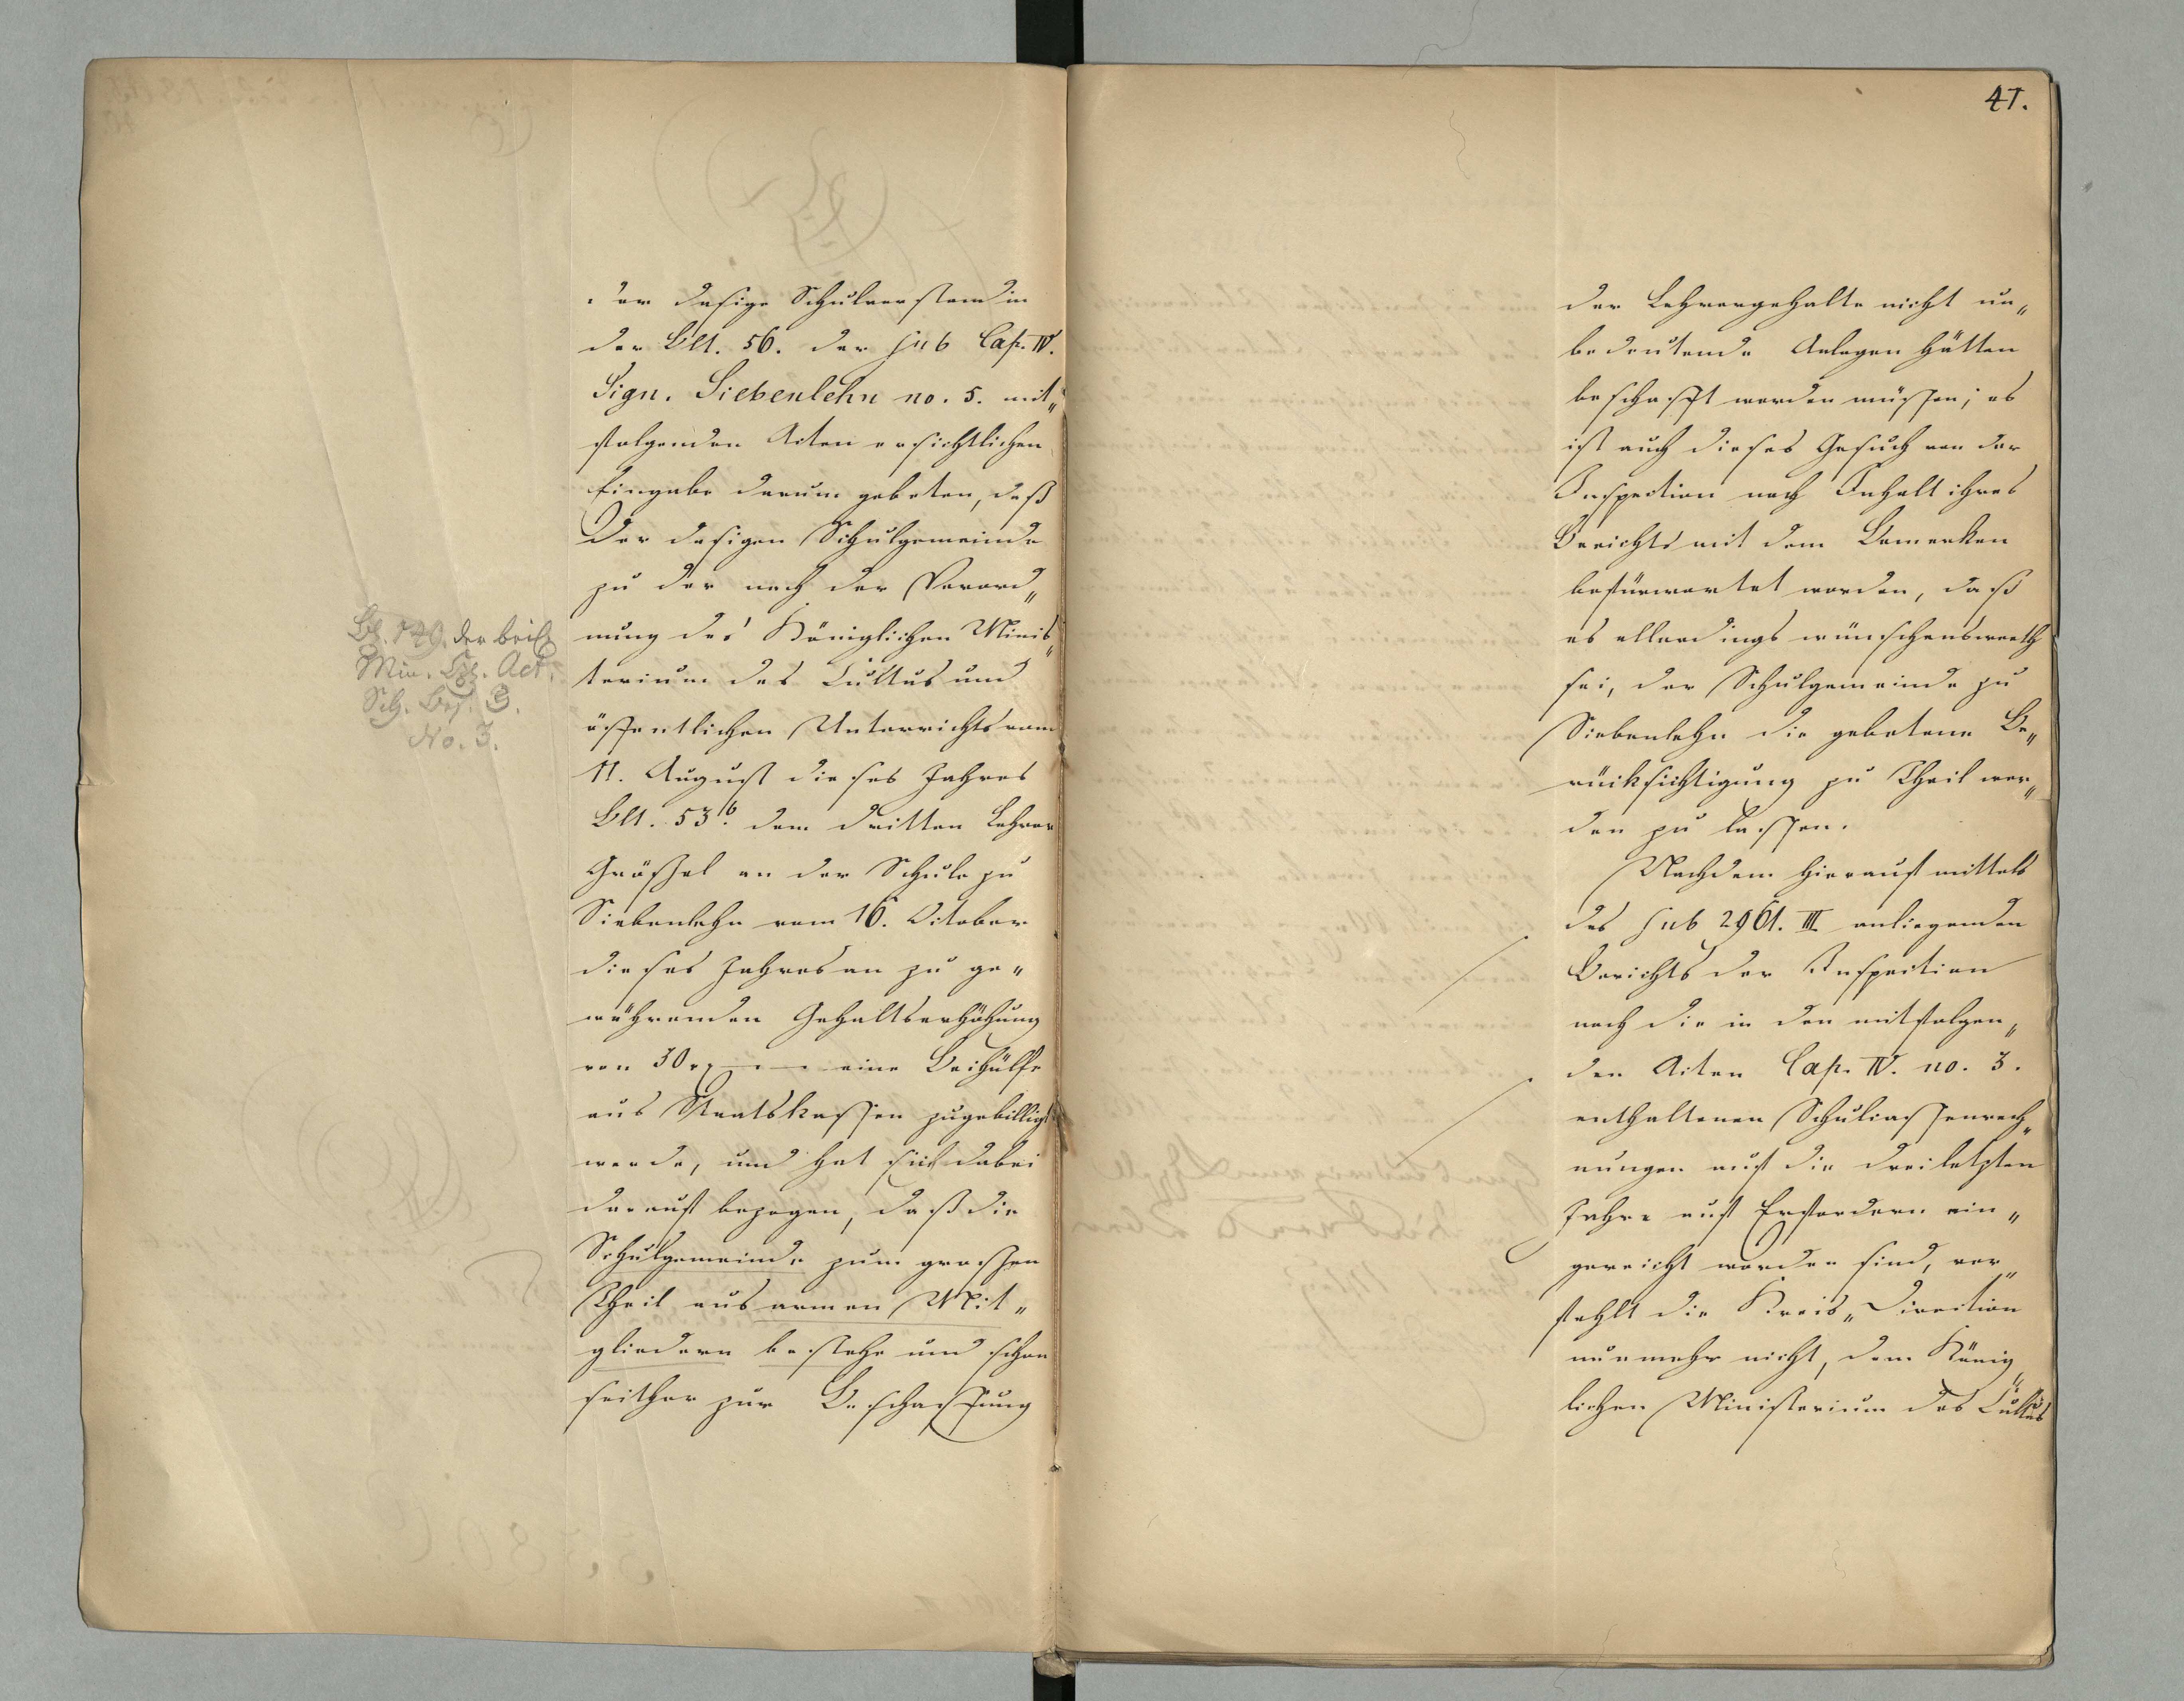 der dasige Schulvorstand in
der Blt. 56. der sub Cap. IV.
Sign. Siebenlehn no. 5. mit„
folgenden Acten ersichtlichen
Eingabe darum gebeten, daß
der dasigen Schulgemeinde
zu der nach der Verord„
nung des Königlichen Minis„
terium des Cultus und
öffentlichen Unterrichts vom
11. August dieses Jahres
Blt. 53b. dem dritten Lehrer
Größel an der Schule zu
Siebenlehn vom 16. October
dieses Jahres an zu ge„
währenden Gehaltserhöhung
von 30 eine Beihülfe
aus Staatskassen zugebilligt
werde, und hat sich dabei
darauf bezogen, daß die
Schulgemeinde zum großen
Theil aus armen Mit„
gliedern bestehe und schon
seither zur Beschaffung
Bl. 149. der beil
Min. Act.
No. 3.
41.
der Lehrergehalte nicht un„
bedeutende Anlagen hätten
beschafft werden müssen; es
ist auch dieses Gesuch von der
Inspection nach Inhalt ihres
Berichts mit dem Bemerken
befürwortet worden, daß
es allerdings wünschenswerth
sei, der Schulgemeinde zu
Siebenlehn die gebetene Be„
rücksichtigung zu Theil wer„
den zu lassen.
Nachdem hierauf mittels
des sub 2961. III anliegenden
Berichts der Inspection
noch die in den mitfolgen„
den Acten Cap. IV. no. 3.
enthaltenen Schulcassenrech„
nungen auf die drei letzten
Jahre auf Erfordern ein„
gereicht worden sind, ver„
fehlt die Kreis„Direction
nunmehr nicht, dem König„
lichen Ministerium des Cultus